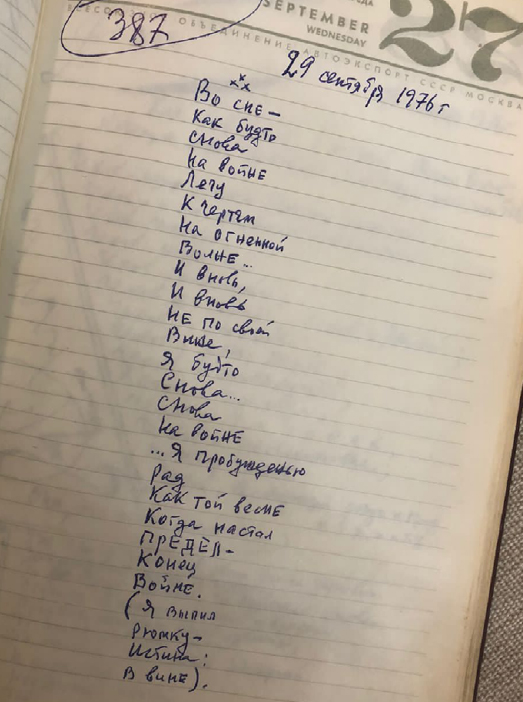 387
SEPTEMBER
WEDNESDAY
27
ОБЪЕДИНЕНИЕ АВТОЭКСПОРТ СССР МОСКВА
29 сентября 1976 г
х х х
Во сне –
Как будто
снова
На войне
Лечу
К чертям
На огненной
Волне...
И вновь,
И вновь
Не по своей
Вине,
Я будто
Снова...
Снова
На войне
...Я пробужденью
Рад
Как той весне
Когда настал
ПРЕДЕЛ –
Конец
Войне.
(Я выпил
Рюмку –
Истина:
В вине).